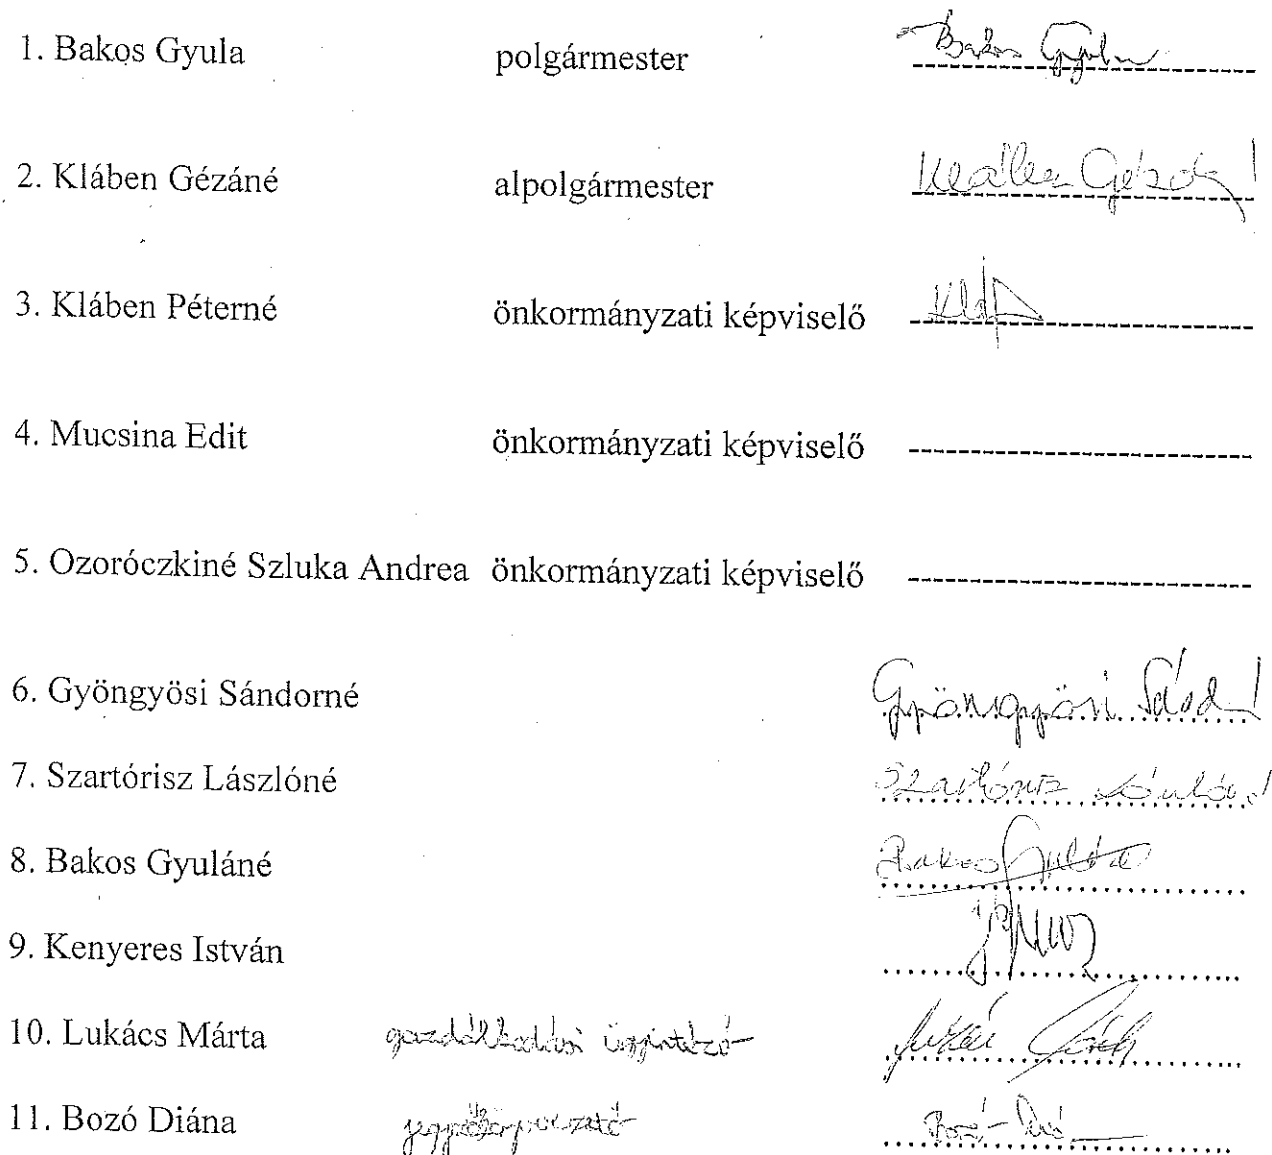 1. Bakos Gyula polgármester Bakos Gyula
2. Kláben Gézáné alpolgármester Kláben Gézáné
3. Kláben Péterné önkormányzati képviselő
4. Mucsina Edit önkormányzati képviselő
5. Ozoróczkiné Szluka Andrea önkormányzati képviselő
6. Gyöngyösi Sándorné Gyöngyösi Sándorné
7. Szartórisz Lászlóné Szartórisz Lászlóné
8. Bakos Gyuláné Bakos Gyuláné
9. Kenyeres István
10. Lukács Márta gazdálkodási ügyintéző
11. Bozó Diána